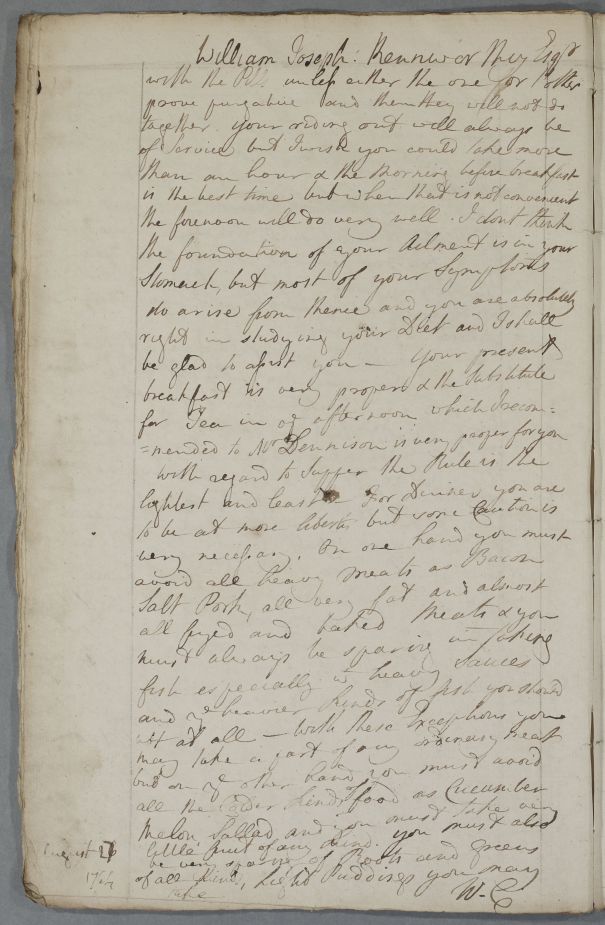 William Joseph: Kennworthy Esqr
with the Pills unless either the one for t'other
prove purgative and then they will not do
together. your riding out will always be
of Service but I wish you could take more
than an hour & the Morning before breakfast
is the best time but when that is not convenient
the forenoon will do very well. I dont think
the foundation of your Ailment is in your
Stomach, but most of your Symptoms
do arise from thence and you are absolutely
right in studying your Diet and I shall
be glad to assist you — your present
breakfast is very proper & the Substitute
for Tea in ye afternoon which I recom=
=mended to Mr Dennison is very proper for you
with regard to Supper the Rule is the
lightest and least. For Dinner you are
to be at more liberty but some Caution is
very necessary. On one hand you must
avoid all heavy Meats as Bacon
Salt Pork, all very fat and almost
all fryed and baked Meats & you
must always be sparing in taking
fish especially wth heavy Sauces
and ye heavier kinds of fish you should
at all — with these Exceptions you
may take a part of any ordinary meat
but on ye other hand you must avoid
all the Colder kinds of food as Cucumber
Melon Sallad and you must take very
little fruit of any kind. you must also
be very sparing of Roots and greens
of all kinds, Light Puddings you may
take W-C
August 2